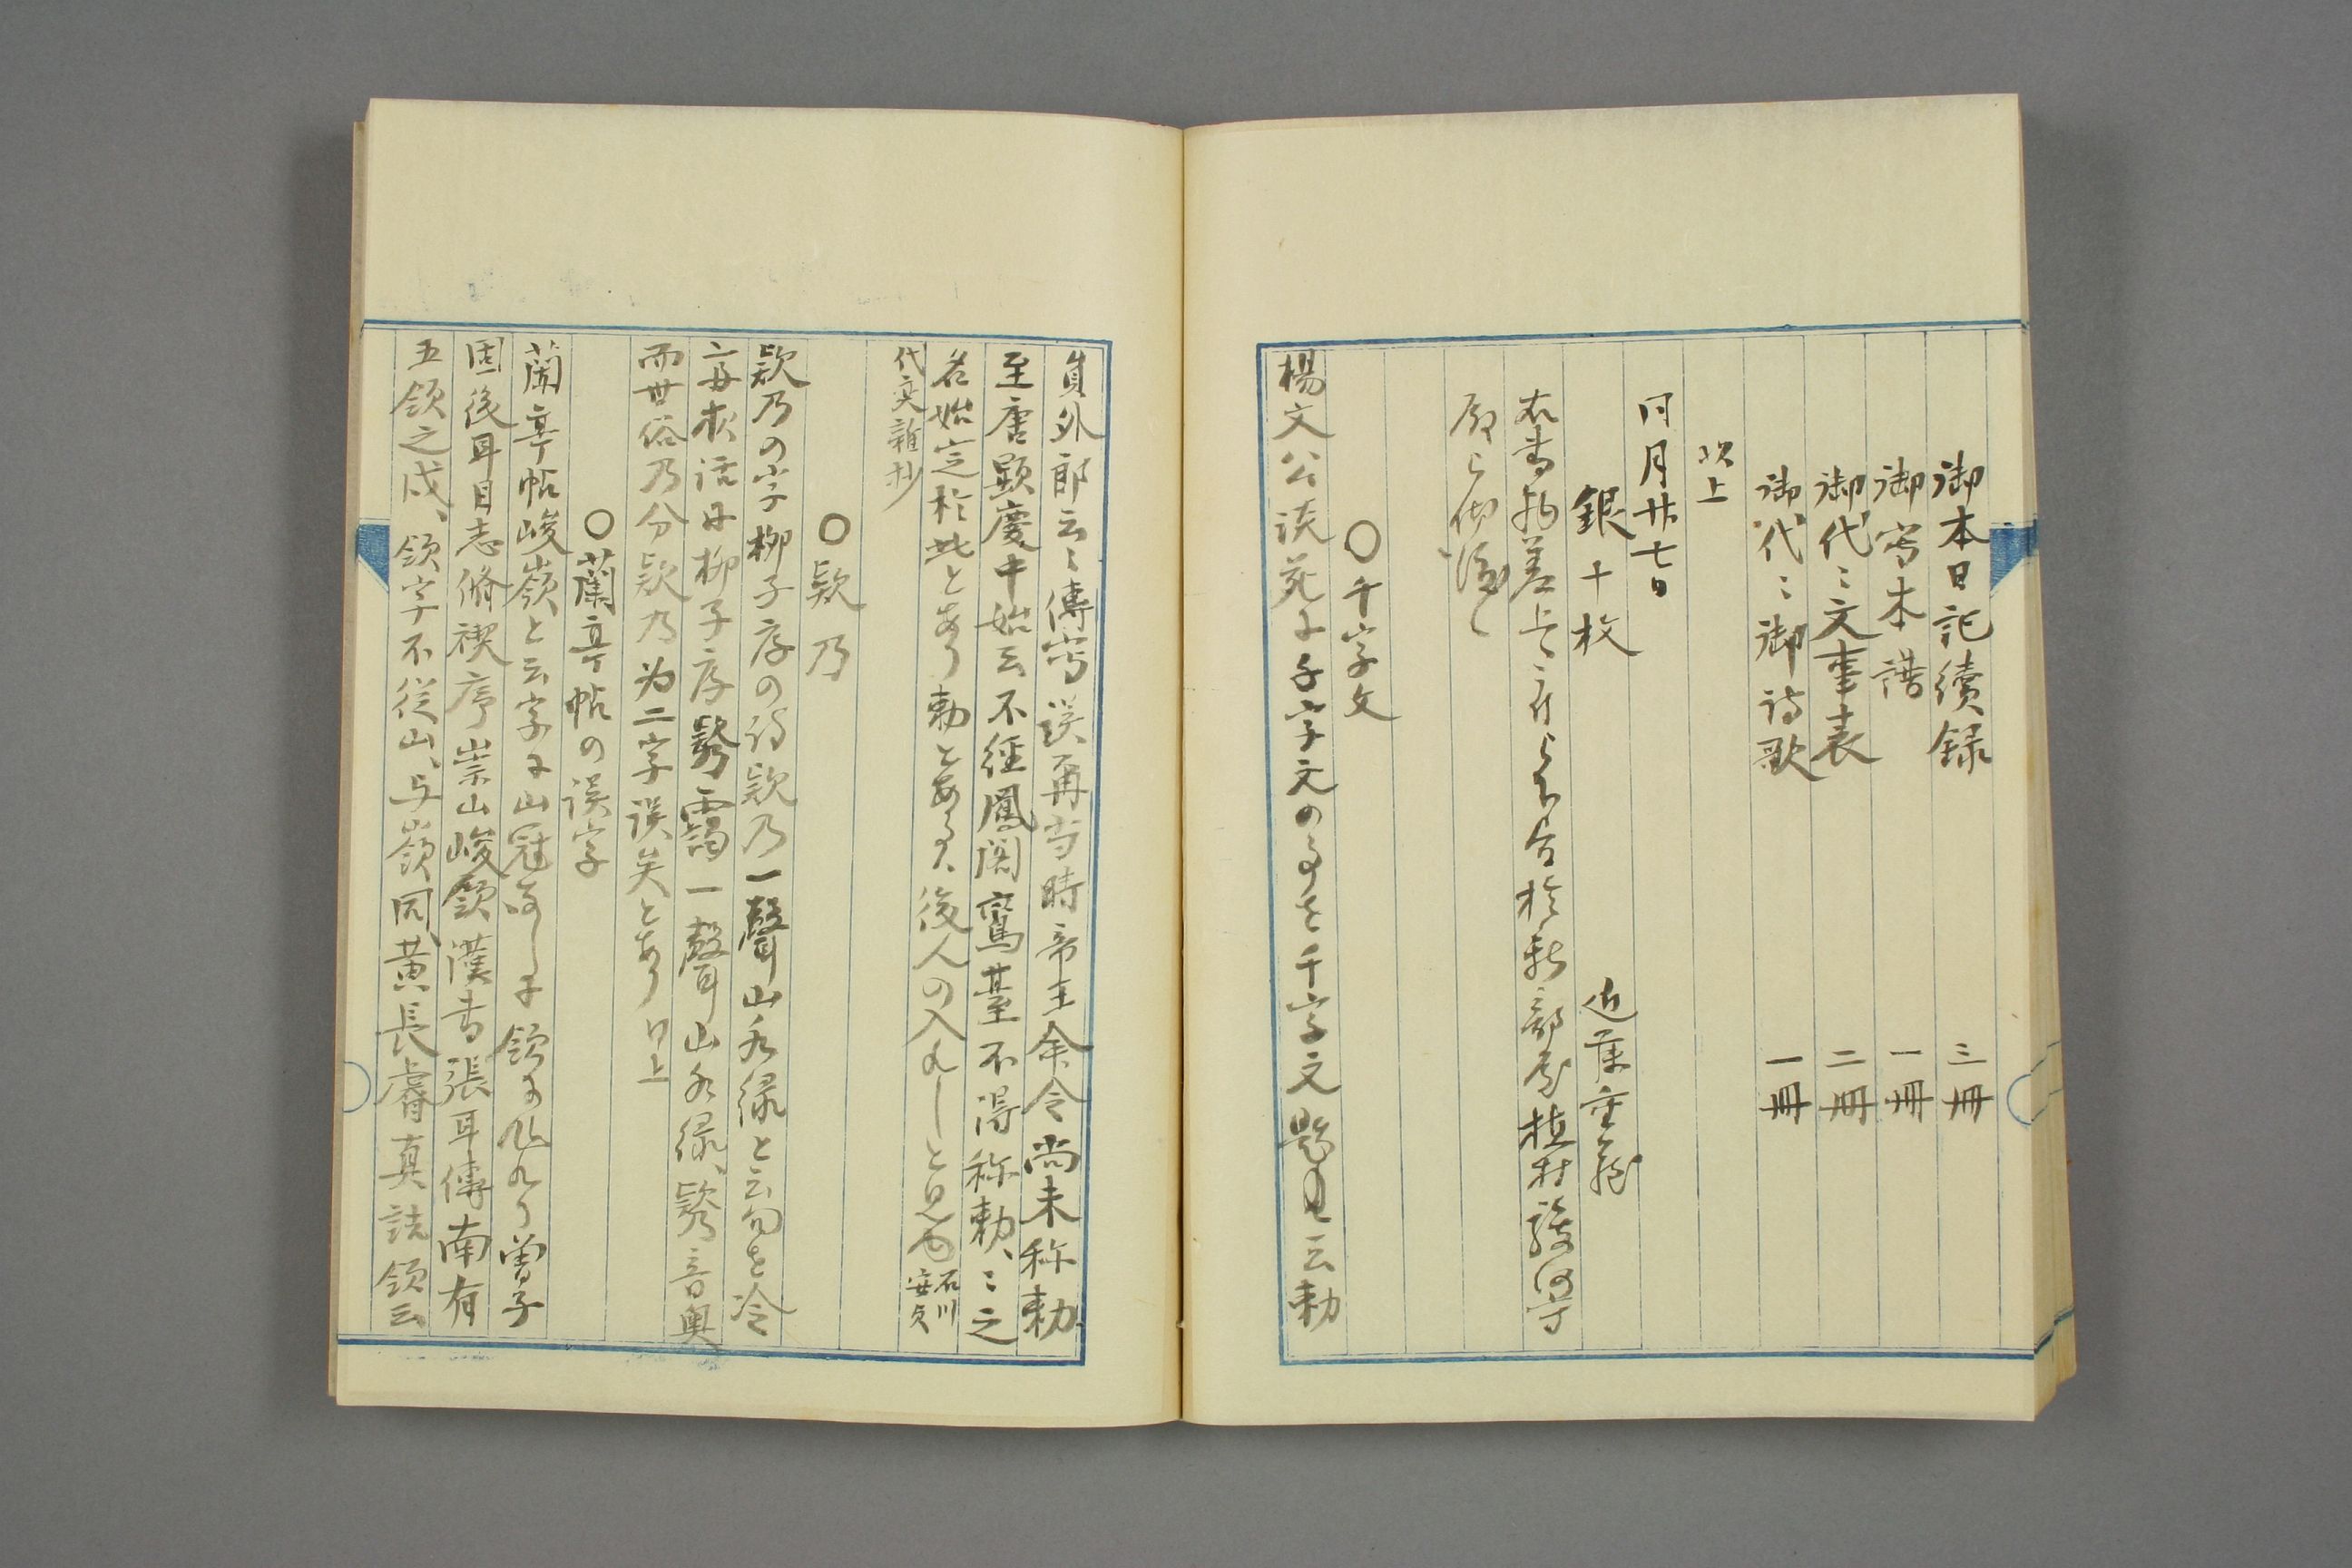 御本日記續録 三冊
御写本譜 一冊
御代〻文事表 二冊
御代〻御詩歌 一冊
以上
同月廿七日
銀十枚 近藤重蔵
右書物差上候ニ付 於新部屋植村駿河守
〇千字文
楊文公談苑に千字文の事を千字文題 云勅
員外郎云〻傳寫誤再当時帝王余令尚未称勅
至唐顕慶中始云不経鳳閣鸞䑓不得称勅、〻之
名始定於此とあり勅とあるハ後人の入れしと見ゆ 石川安貞
代奕雑抄
〇欵乃
欵乃の字柳子厚の詩欵乃一聲山水緑と云句を冷
斎夜話曰柳子厚 靄一聲山水緑、 音奥
而世俗乃分欵乃为二字誤矣とあり 同上
〇蘭亭帖の誤字
蘭亭帖峻嶺と云字に山冠なしに領に作れり曽子
固後耳目志脩禊序崇山峻領漢書張耳傳南有
五領之戍、領字不従山、与嶺同、黄長睿真誥領云